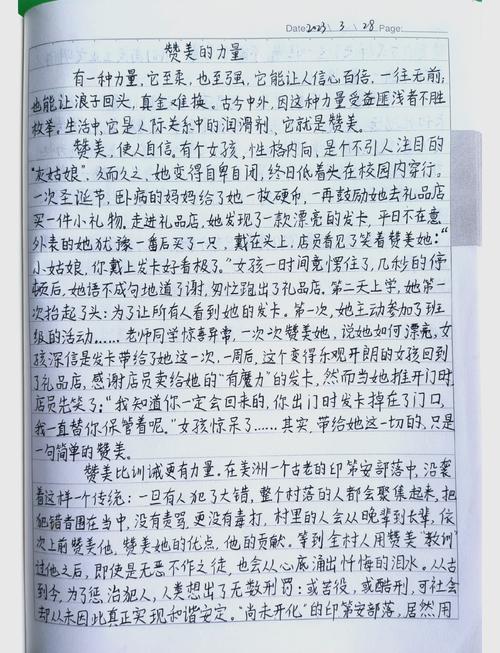 Date 2023 / 3 \ 28 Page:
赞美的力量
有一种力量,它至柔,也至强,它能让人信心百倍,一往无前;
也能让浪子回头,真金难换。古今中外,因这种力量受益匪浅者不胜
枚举。生活中,它是人际关系中的润滑剂,它就是赞美。
赞美,使人自信。有个女孩,性格内向,是个不引人注目的
“衷姑娘”,久而久之,她变得自卑自闭,终日低着头在校园内穿行。
一次圣诞节,卧病的妈妈给了她一枚硬币,一再鼓励她去礼品店
买一件小礼物。走进礼品店,她发现了一款漂亮的发卡,平日不在意
外表的她犹豫一番后买了一只,戴在头上,店员看见了笑着赞美她:“
小姑娘,你戴上发卡好看极了。”女孩一时间竟愣住了,几秒的停
顿后,她语不成句地道了谢,匆忙跑出了礼品店。第二天上学,她第一
次抬起了头:为了让所有人看到她的发卡。第一次,她主动参加了班
级的活动……老师同学惊喜异常,一次次赞美她,说她如何漂亮,女
孩深信是发卡带给了她这一次,一周后,这个变得乐观开朗的女孩回到
了礼品店,感谢店员卖给她的“有魔力”的发卡,然而当她推开门时,
店员先笑了:“我知道你一定会回来的,你出门时发卡掉在了门口,
我一直替你保管着呢。”女孩惊呆了……其实,带给她这一切的,只是
一句简单的赞美。
赞美比训诫更有力量。在美洲一个古老的印第安部落中,沿袭
着这样一个传统:一旦有人犯了大错,整个村落的人都会聚集起来,把
犯错者围在当中,没有责骂,更没有毒打,村里的人会从晚辈到长辈,依
次上前赞美他,赞美她的优点,他的贡献。等到全村人用赞美“教训”
过他之后,即使是无恶不作之徒,也会从心底涌出忏悔的泪水。从古
到今,为了惩治犯人,人类想出了无数刑罚:或苦役,或酷刑,可社会
却从未因此真正实现和谐安定。“尚未开化”的印第安部落,居然用